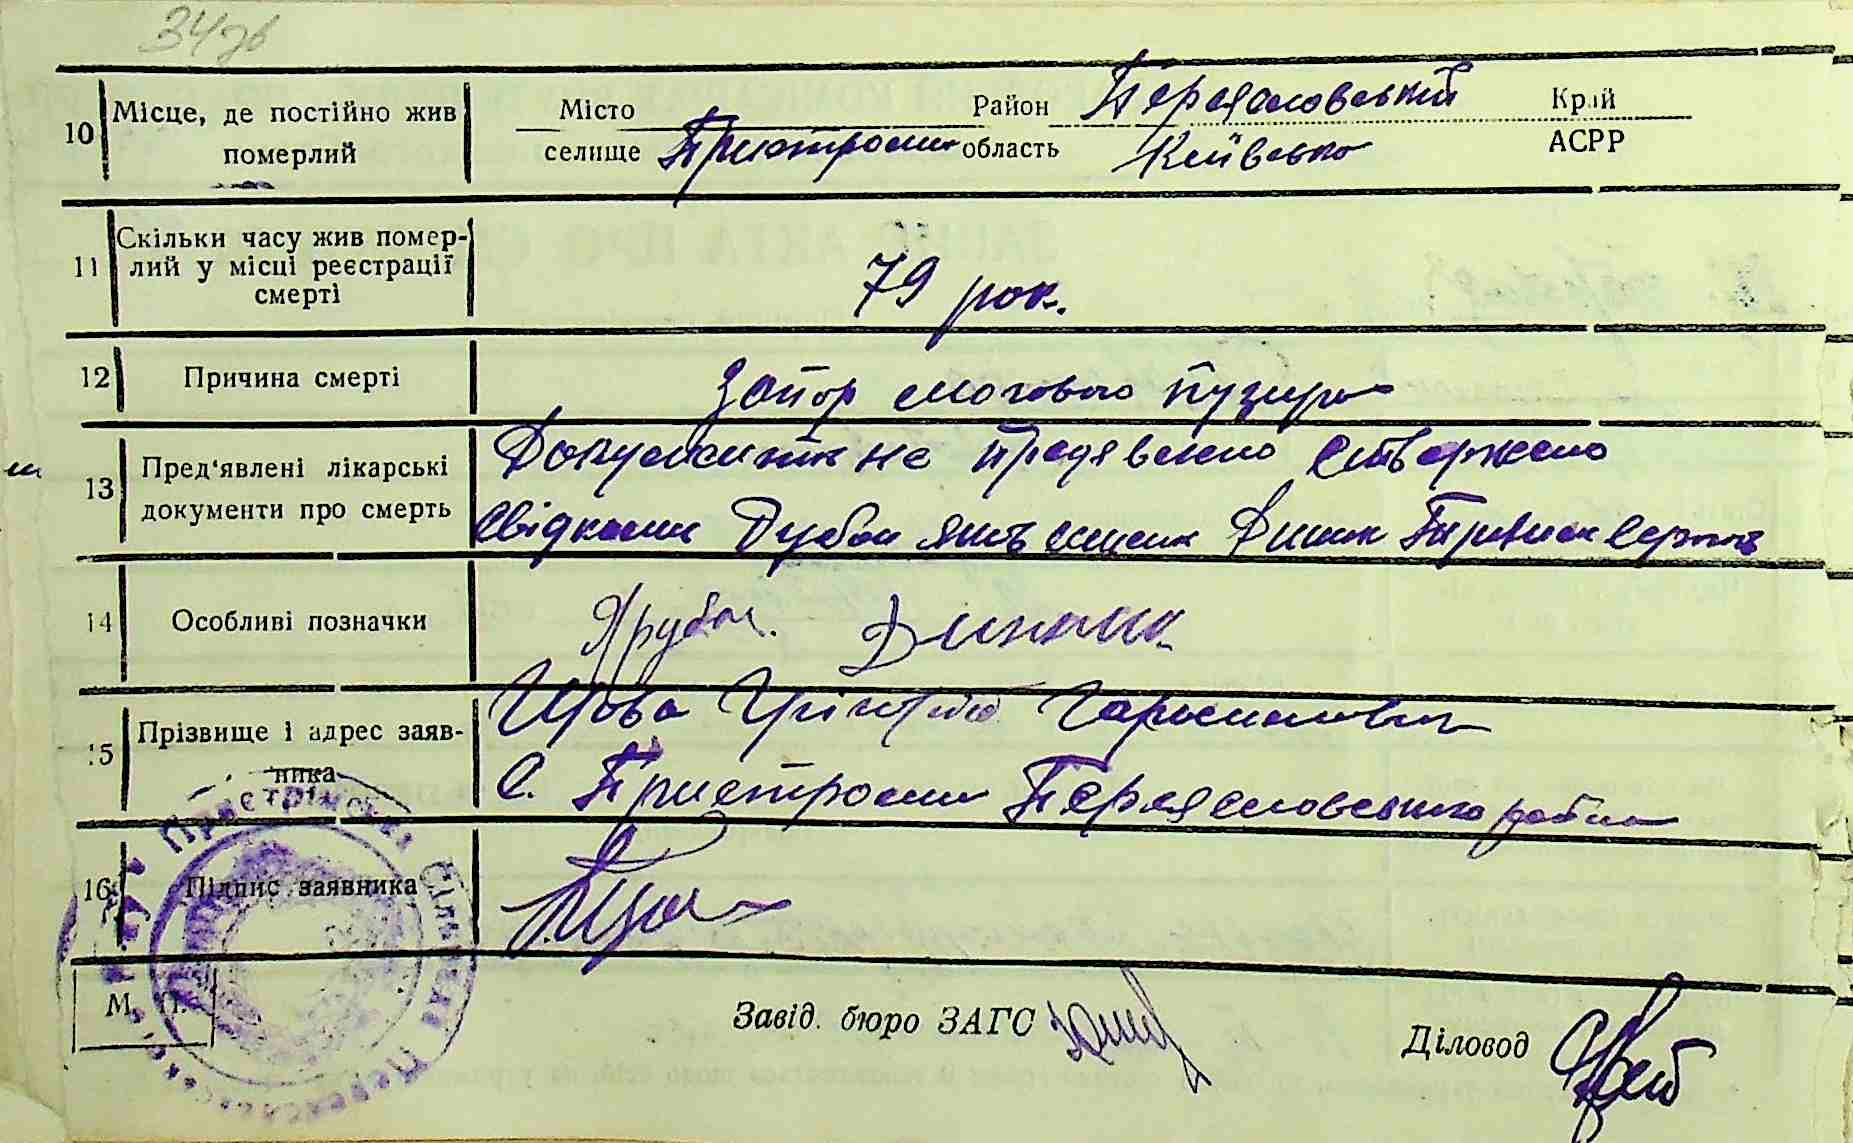 34 зв
10 Місце, де постійно жив померлий
Місто Район Переяславський Край
селище Пристроми область Київсько АСРР
11 Скільки часу жив помер-
лий у місці реєстрації
смерті
79 рок.
12 Причина смерті Запор мочового пузиря
13 Пред'явлені лікарські
документи про смерть
Документи не предявлено ствержено
свідками Дубом Диник
14 Особливі позначки
15 Прізвище і адрес заяв-
ника
Цьова Григорій Герасимович
С. Пристроми Переясловського района
16 Підпис заявника
М. П.
Завід. бюро ЗАГС
Діловод
Пристрімська Сільська